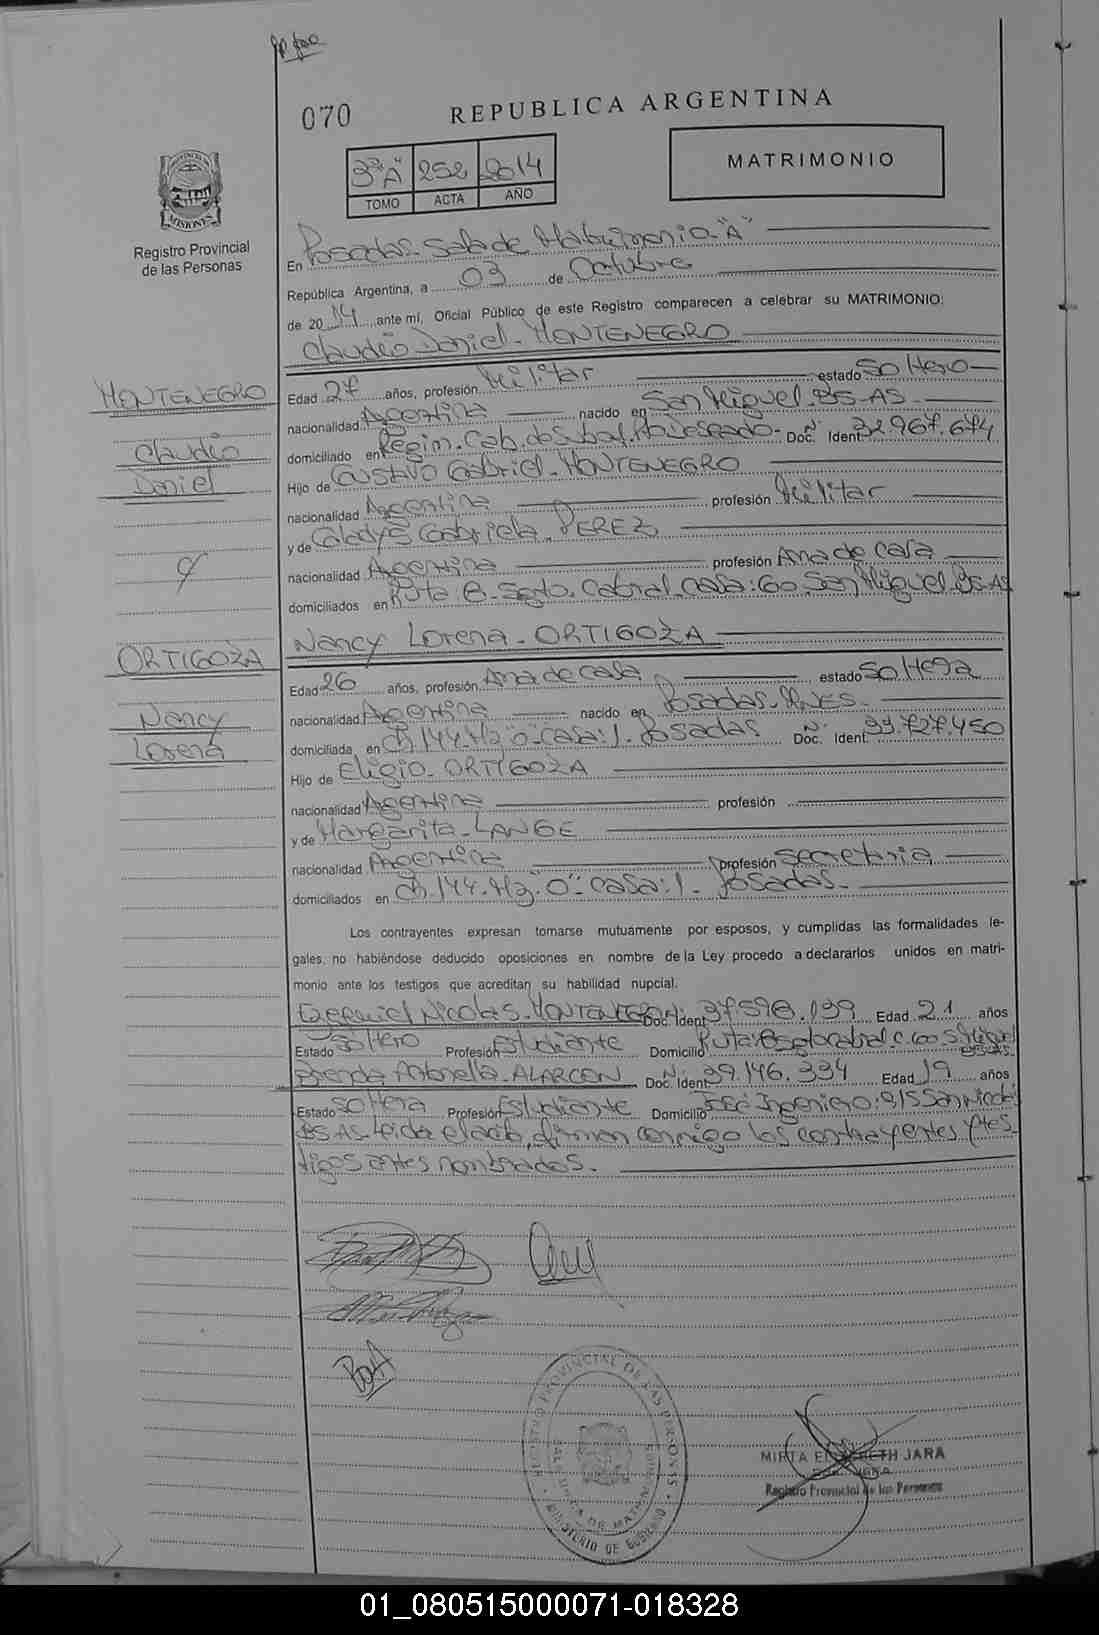 070
REPUBLICA ARGENTINA
MATRIMONIO
3º "A" 252 2014
TOMO ACTA AÑO
MISIONES
Registro Provincial
de las Personas
En Posadas. Sala de Matrimonio "A"
República Argentina, a 03 de Octubre
de 2014 ante mí, Oficial Público de este Registro comparecen a celebrar su MATRIMONIO:
Claudio Daniel - MONTENEGRO
MONTENEGRO
Claudio
Daniel
Edad 27 años, profesión Militar estado Soltero
nacionalidad Argentina nacido en San Miguel. BS-AS.
domiciliado en Regin. Cab. Doc. Nº Ident. 32.967.674
Hijo de Gustavo Gabriel - MONTENEGRO
nacionalidad Argentina profesión Militar
y de Gladys Gabriela. PEREZ
nacionalidad Argentina profesión Ama de casa
domiciliados en Ruta: 8. Sgto. Cabral. Casa: 60. San Miguel. BS-AS
Nancy Lorena - ORTIGOZA
ORTIGOZA
Nancy
Lorena
Edad 26 años, profesión Ama de casa estado Soltera
nacionalidad Argentina nacido en Posadas. Mnes.
domiciliada en Ch. 144. Mz. O. casa: 1. Posadas Doc. Nº Ident. 33.727.450
Hijo de Eligio - ORTIGOZA
nacionalidad Argentina profesión
y de Margarita - LANGE
nacionalidad Argentina profesión Secretaria
domiciliados en Ch. 144. Mz. O" casa: 1. Posadas.
Los contrayentes expresan tomarse mutuamente por esposos, y cumplidas las formalidades le-
gales, no habiéndose deducido oposiciones en nombre de la Ley procedo a declararlos unidos en matri-
monio ante los testigos que acreditan su habilidad nupcial.
Ezequiel Nicolas. MONTENEGRO Doc. Ident. 37.598.199 Edad 21 años
Estado Soltero Profesión Estudiante Domicilio Ruta: 8 Sgto cabral c. 60 S. Miguel
Brenda Antonella. ALARCON Doc. Nº Ident. 39.146.334 Edad 19 años
Estado Soltera Profesión Estudiante Domicilio José Ingeniero: 915 San Nicolás
BS-AS. Leída el acta, firman conmigo los contrayentes y tes-
tigos antes nombrados.
REGISTRO PROVINCIAL DE LAS PERSONAS
MINISTERIO DE GOBIERNO
MIRTA ELIZABETH JARA
Registro Provincial de las Personas
01_080515000071-018328